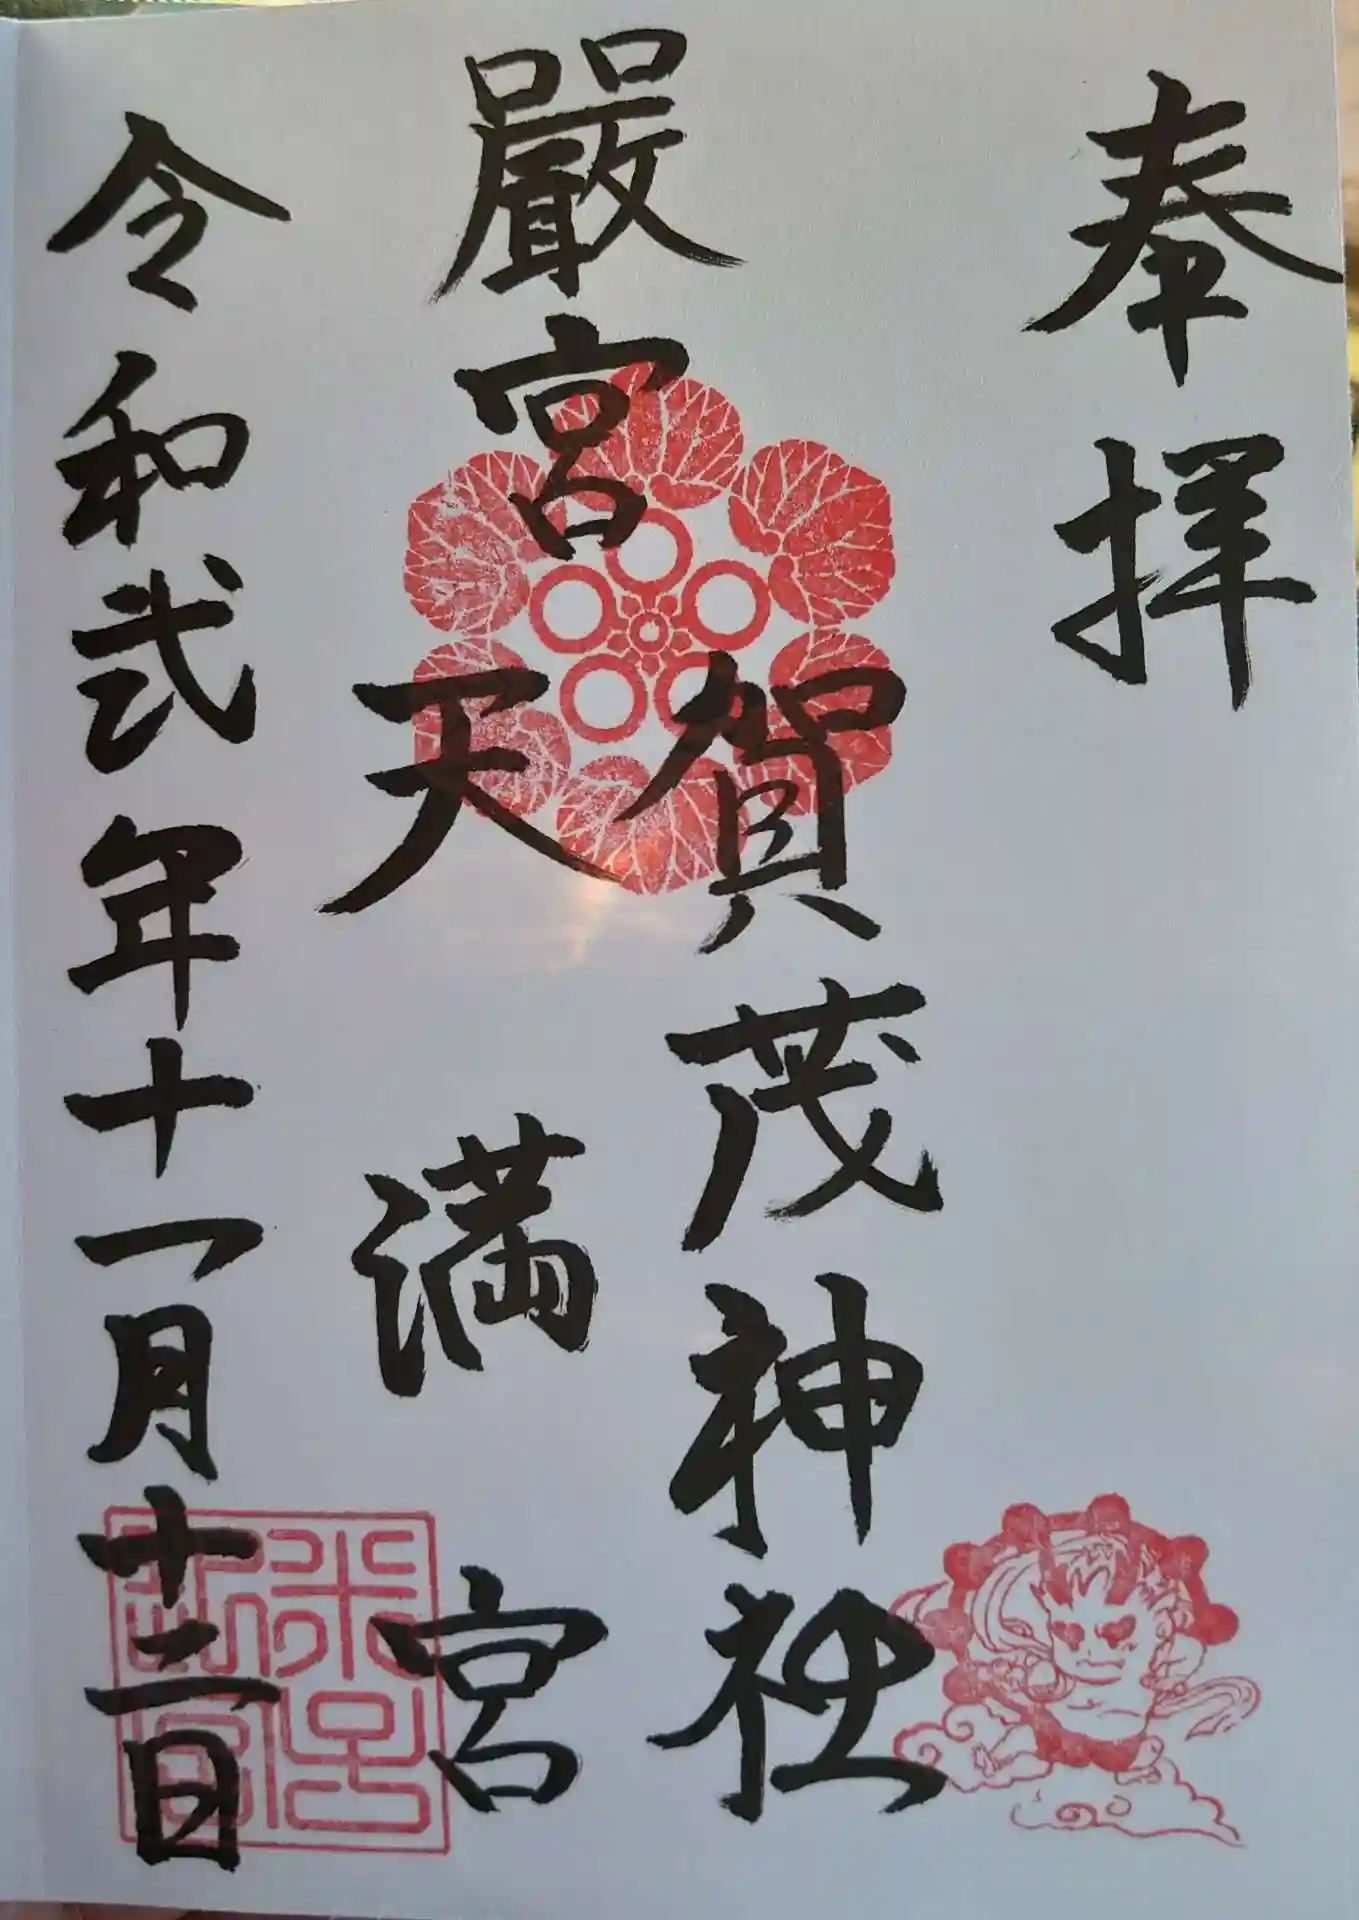 奉拝
嚴宮
賀茂神社
天満宮
令和弐年十一月十二日